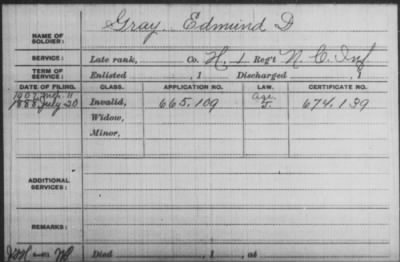 NAME OF SOLDIER: Gray Edmund D
SERVICE: Late rank, Co. H, 1 Reg't N. C. Inf
TERM OF SERVICE: Enlisted , 1 Discharged , 1
DATE OF FILING. CLASS. APPLICATION NO. LAW. CERTIFICATE NO.
1907 Mch. 11 Age
1888 July 20 Invalid, 665.109 J. 674.139
Widow,
Minor,
ADDITIONAL SERVICES:
REMARKS:
Died , 1 , at